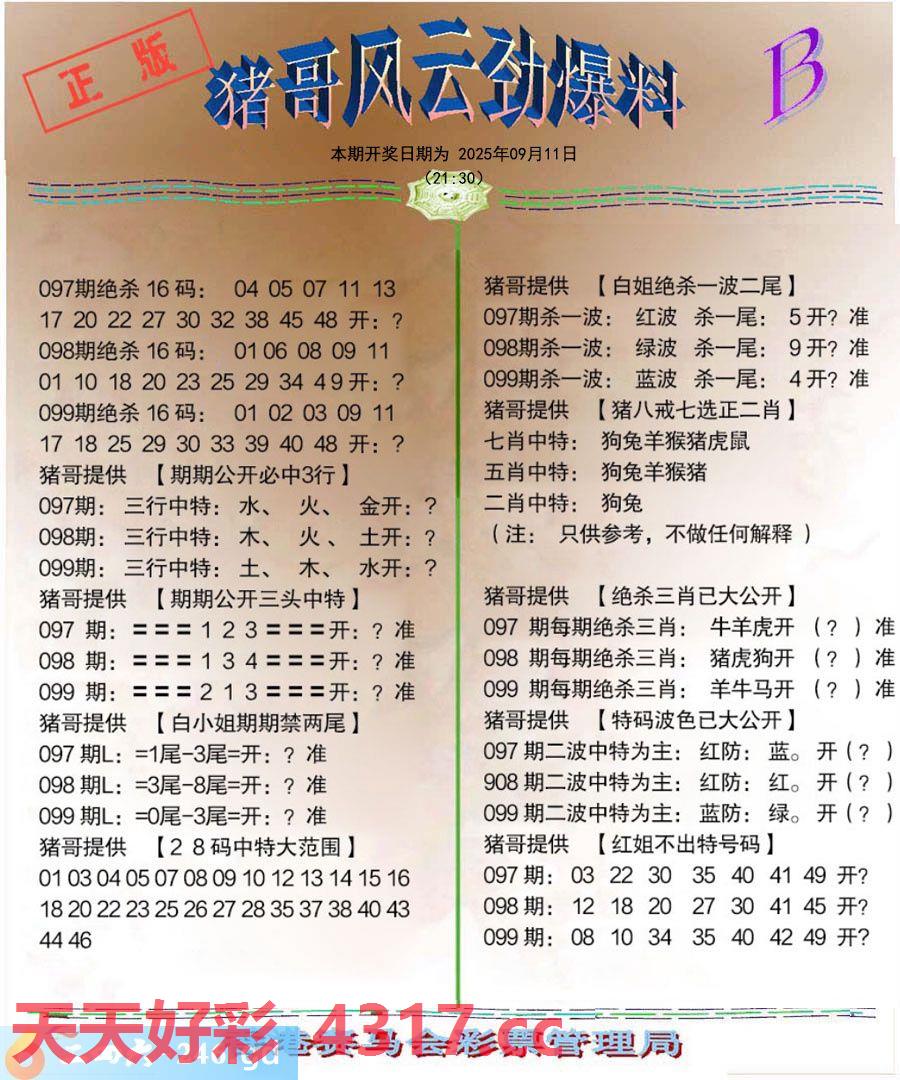 正版
猪哥风云劲爆料
B
本期开奖日期为 2025年09月11日
(21:30)
097期绝杀16码： 04 05 07 11 13
17 20 22 27 30 32 38 45 48 开：?
098期绝杀16码： 01 06 08 09 11
01 10 18 20 23 25 29 34 4 9 开：?
099期绝杀16码： 01 02 03 09 11
17 18 25 29 30 33 39 40 48 开：?
猪哥提供 【期期公开必中3行】
097期：三行中特：水、 火、 金开：?
098期：三行中特：木、 火、 土开：?
099期：三行中特：土、 木、 水开：?
猪哥提供 【期期公开三头中特】
097 期：=== 1 2 3 ===开：? 准
098 期：=== 1 3 4 ===开：? 准
099 期：=== 2 1 3 ===开：? 准
猪哥提供 【白小姐期期禁两尾】
097期L：=1尾-3尾=开：? 准
098期L：=3尾-8尾=开：? 准
099期L：=0尾-3尾=开：? 准
猪哥提供 【28码中特大范围】
01 03 04 05 07 08 09 10 12 13 14 15 16
18 20 22 23 25 26 27 28 35 37 38 40 43
44 46
猪哥提供 【白姐绝杀一波二尾】
097期杀一波： 红波 杀一尾： 5开? 准
098期杀一波： 绿波 杀一尾： 9开? 准
099期杀一波： 蓝波 杀一尾： 4开? 准
猪哥提供 【猪八戒七选正二肖】
七肖中特： 狗兔羊猴猪虎鼠
五肖中特： 狗兔羊猴猪
二肖中特： 狗兔
（注： 只供参考，不做任何解释 ）
猪哥提供 【绝杀三肖已大公开】
097 期每期绝杀三肖： 牛羊虎开 （? ）准
098 期每期绝杀三肖： 猪虎狗开 （? ）准
099 期每期绝杀三肖： 羊牛马开 （? ）准
猪哥提供 【特码波色已大公开】
097期二波中特为主：红防：蓝。开(? )
908期二波中特为主：红防：红。开(? )
099期二波中特为主：蓝防：绿。开(? )
猪哥提供 【红姐不出特号码】
097期： 03 22 30 35 40 41 49 开?
098期： 12 18 20 27 30 41 45 开?
099期： 08 10 34 35 40 42 49 开?
天天好彩 4317.cc
港赛马会彩票管理局